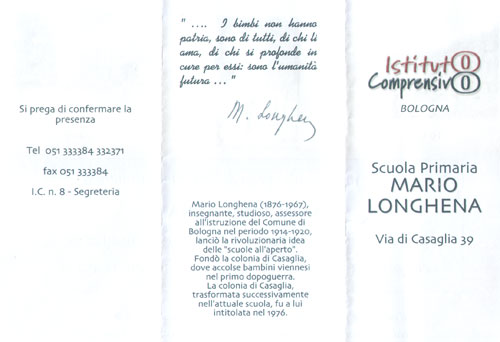 Si prega di confermare la
presenza
Tel 051 333384 332371
fax 051 333384
I.C. n. 8 - Segreteria
" .... I bimbi non hanno
patria, sono di tutti, di chi li
ama, di chi si profonde in
cure per essi: sono l'umanità
futura ... "
M. Longhena
Mario Longhena (1876-1967),
insegnante, studioso, assessore
all'istruzione del Comune di
Bologna nel periodo 1914-1920,
lanciò la rivoluzionaria idea
delle "scuole all'aperto".
Fondò la colonia di Casaglia,
dove accolse bambini viennesi
nel primo dopoguerra.
La colonia di Casaglia,
trasformata successivamente
nell'attuale scuola, fu a lui
intitolata nel 1976.
Istituto
Comprensivo
BOLOGNA
Scuola Primaria
MARIO
LONGHENA
Via di Casaglia 39